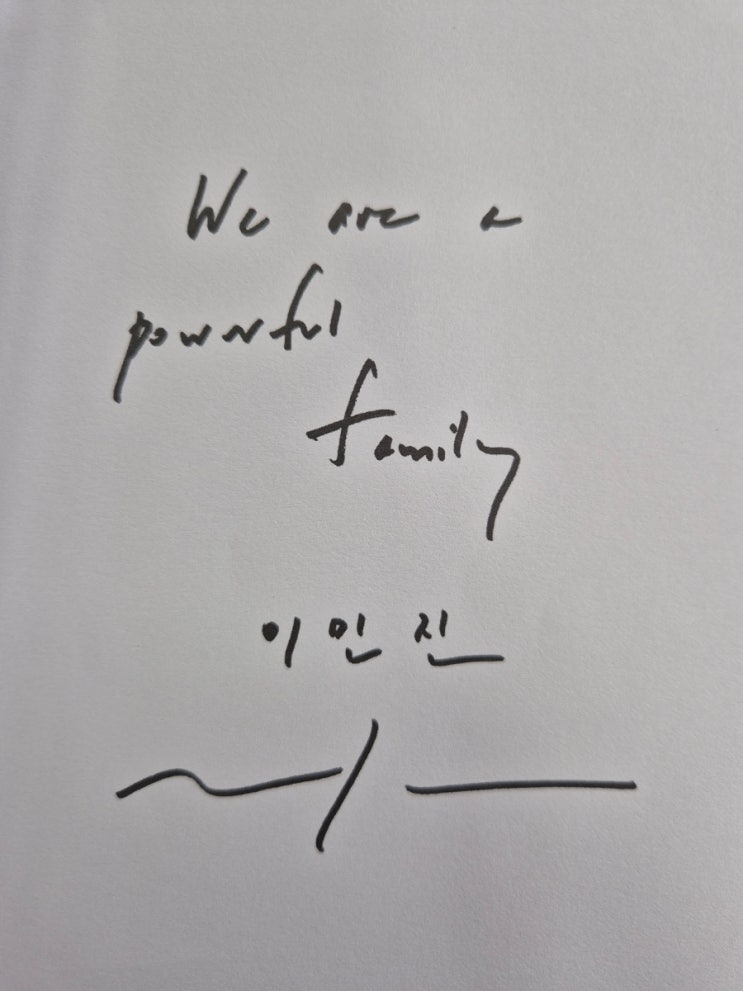 We are a
powerful
family
이민진